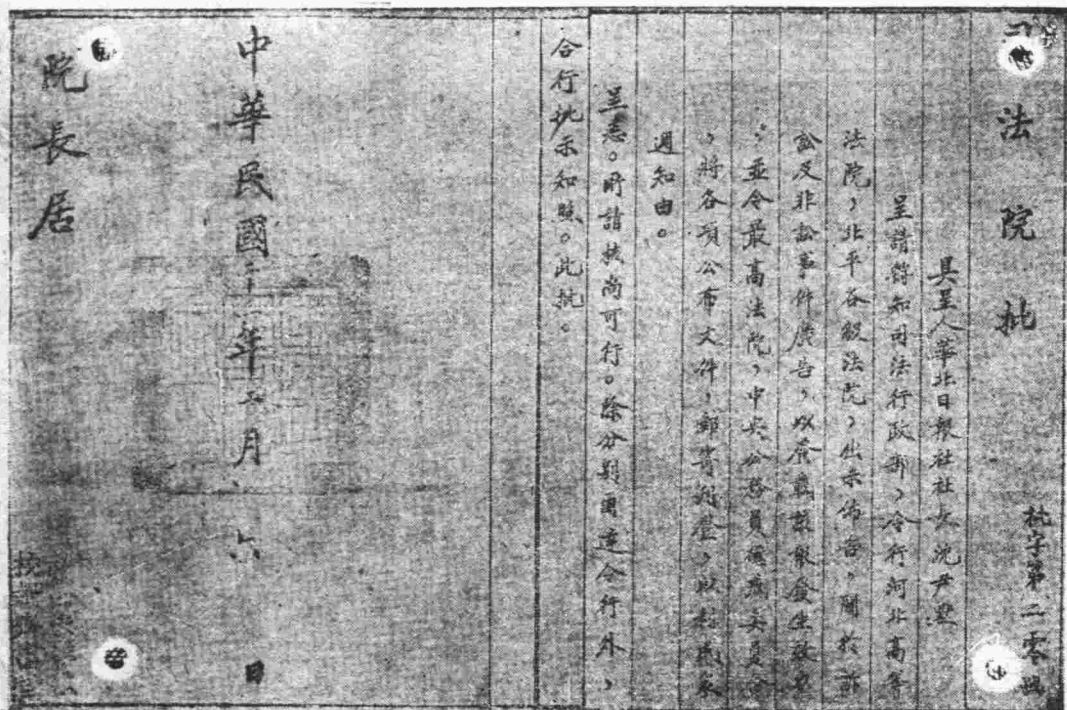 司法院批
批字第二零號
具呈人華北日報社社長沈尹默
呈請飭知司法行政部，令行河北高等
法院，北平各級法院，出示佈告，關於訴
訟及非訟事件廣告，以登載該報發生效力
；並令最高法院，中央公務員懲戒委員會
，將各項公布文件，郵寄刊登，以利民眾
週知由。
呈悉。所請核尚可行。除分別函達令行外，
合行批示知照。此批。
中華民國二十一年五月六日
院長居